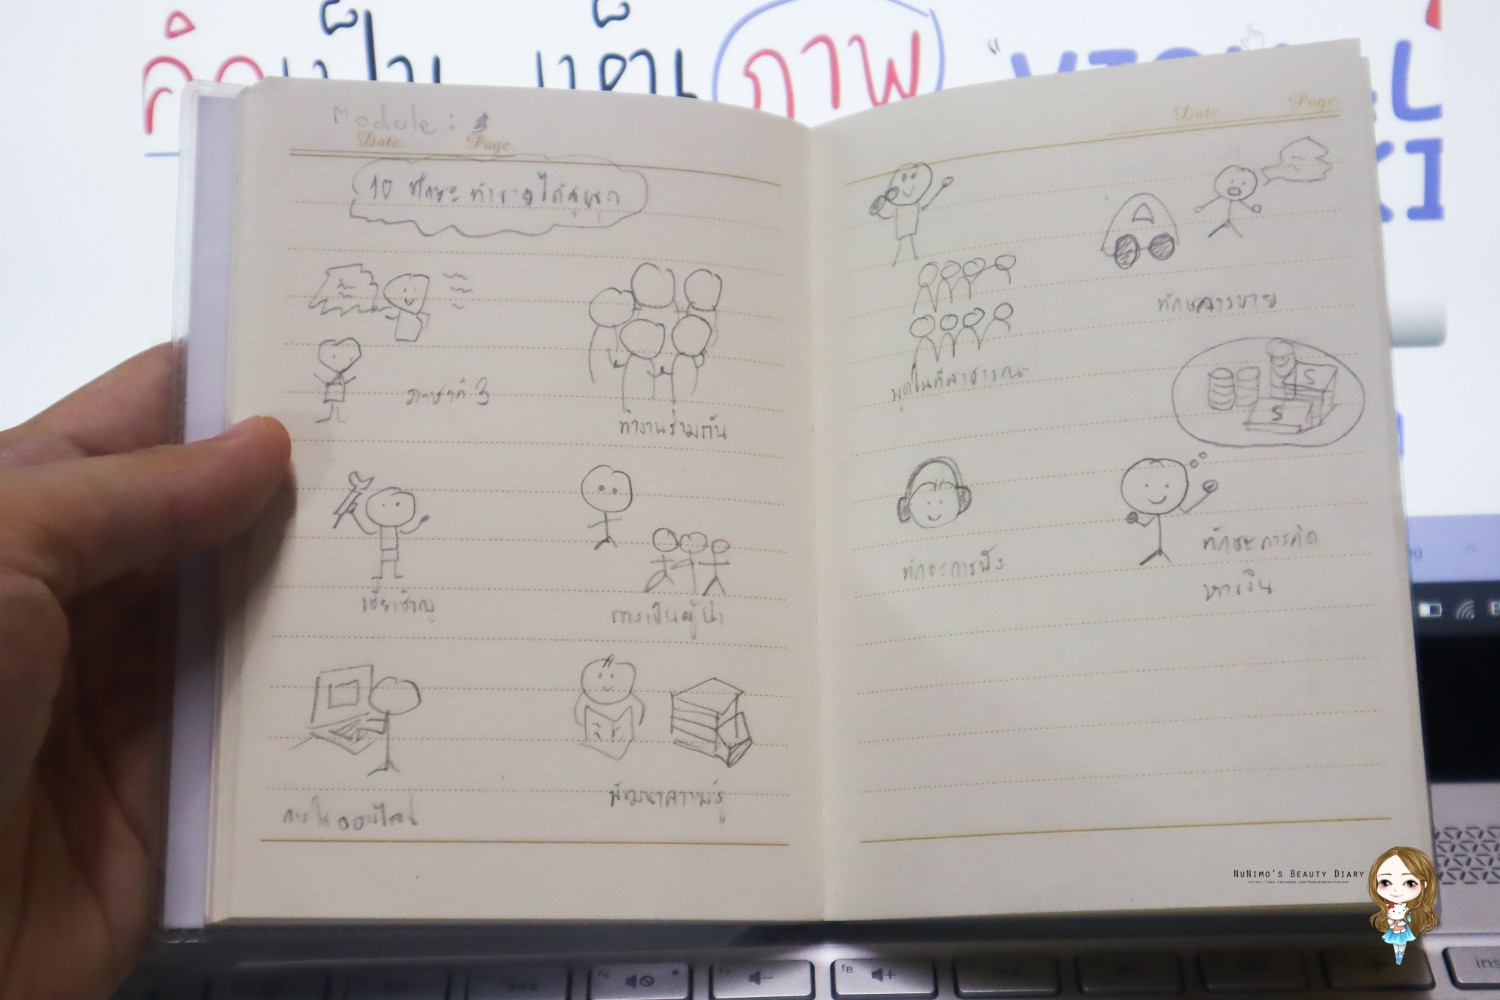 คิดเป็น เห็น ภาพ "VISU
KI
Module : 3
Date. Page
10 ทักษะทำรายได้สูงสุด
ภาษาที่ 3
ทำงานร่วมกัน
เชี่ยวชาญ
การเป็นผู้นำ
การใช้ออนไลน์
พัฒนาความรู้
Date. Page
พูดในที่สาธารณะ
ทักษะการขาย
S
S
ทักษะการฟัง
ทักษะการคิด
หาเงิน
NuNimo's Beauty Diary
f6
f7
f8
ins